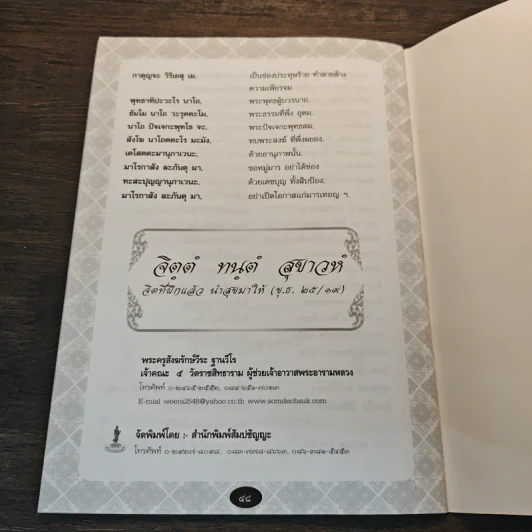 กาตุญจะ วิริเยสุ เม, เป็นช่องประทุษร้าย ทำลายล้าง
ความเพียรจม.
พุทธาทิปะวะโร นาโถ, พระพุทธผู้บวรนาถ,
ธัมโม นาโถ วะรุตตะโม, พระธรรมที่พึ่ง อุดม,
นาโถ ปัจเจกะพุทโธ จะ, พระปัจเจกะพุทธสม,
สังโฆ นาโถตตะโร มะมัง, ทบพระสงฆ์ ที่พึ่งผยอง,
เตโสตตะมานุภาเวนะ, ด้วยอานุภาพนั้น,
มาโรกาสัง ละภันตุ มา, ขอหมู่มาร อย่าได้ช่อง
ทะสะปุญญานุภาเวนะ, ด้วยเดชบุญ ทั้งสิบป้อง,
มาโรกาสัง ละภันตุ มา, อย่าเปิดโอกาสแก่มารเทอญ ฯ.
จิตฺตํ ทนฺตํ สุขาวหํ
จิตที่ฝึกแล้ว นำสุขมาให้ (ขุ.ธ. ๒๕/๑๙)
พระครูสังฆรักษ์วีระ ฐานวีโร
เจ้าคณะ ๕ วัดราชสิทธาราม ผู้ช่วยเจ้าอาวาสพระอารามหลวง
โทรศัพท์ ๐-๒๔๖๕-๒๕๕๒, ๐๘๔-๖๕๑-๗๐๒๓
E-mial weera2548@yahoo.co.th www.somdechsuk.com
จัดพิมพ์โดย :- สำนักพิมพ์สัมปชัญญะ
โทรศัพท์ ๐-๒๙๒๗-๘๐๙๘, ๐๘๓-๗๗๘-๘๖๖๓, ๐๘๖-๓๘๑-๕๔๕๓
๔๘